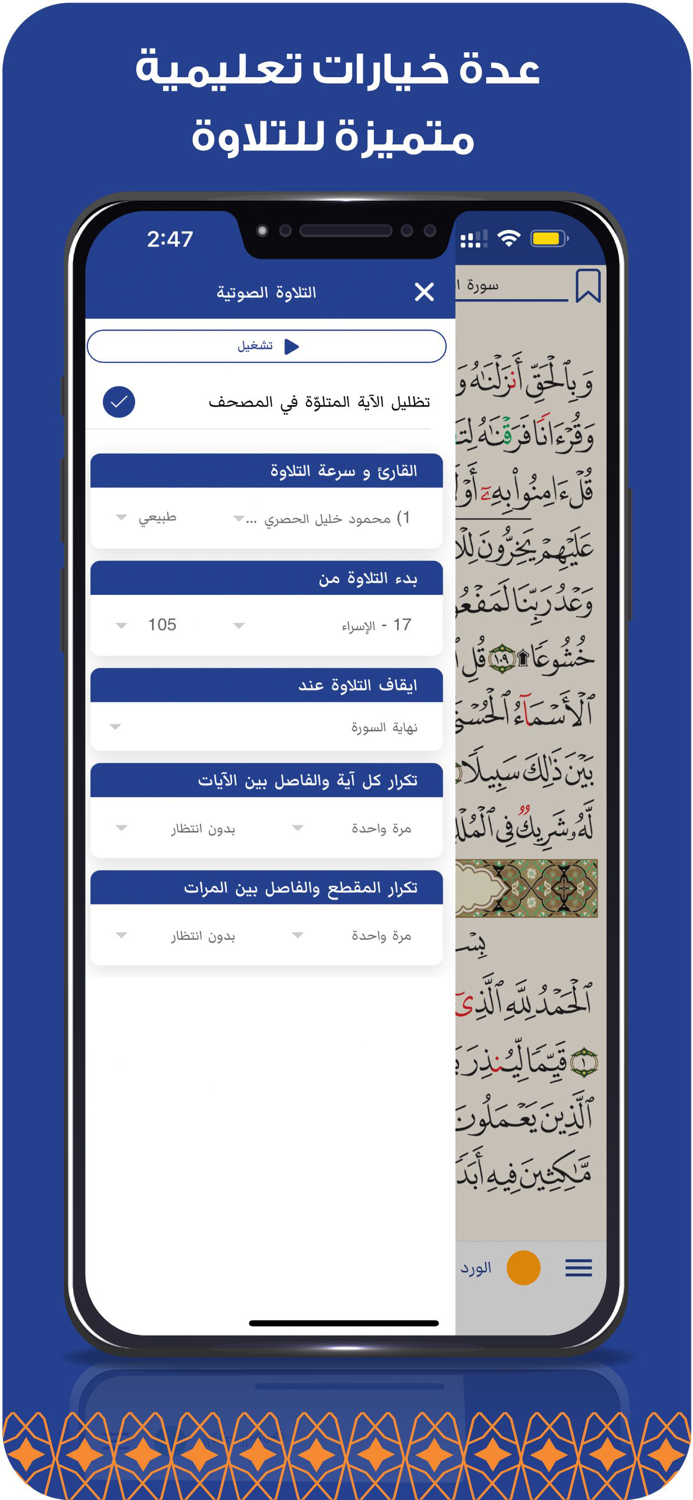 عدة خيارات تعليمية
متميزة للتلاوة
2:47
التلاوة الصوتية
تشغيل
تظليل الآية المتلوّة في المصحف
القارئ و سرعة التلاوة
1) محمود خليل الحصري ...
طبيعي
بدء التلاوة من
17 - الإسراء
105
ايقاف التلاوة عند
نهاية السورة
تكرار كل آية والفاصل بين الآيات
مرة واحدة
بدون انتظار
تكرار المقطع والفاصل بين المرات
مرة واحدة
بدون انتظار
سورة ا
وَبِٱلْحَقِّ أَنزَلْنَٰهُ وَ
وَقُرْءَانًا فَرَقْنَٰهُ لِتَ
قُلْ ءَامِنُوا۟ بِهِۦٓ أَوْ لَا
عَلَيْهِمْ يَخِرُّونَ لِلْأ
وَعْدُ رَبِّنَا لَمَفْعُو
خُشُوعًا ۩ ١٠٩ قُلِ ٱ
ٱلْأَسْمَآءُ ٱلْحُسْنَىٰ
بَيْنَ ذَٰلِكَ سَبِيلًا
لَّهُۥ شَرِيكٌ فِى ٱلْمُلْ
بِسْ
ٱلْحَمْدُ لِلَّهِ ٱلَّذِىٓ
١ قَيِّمًا لِّيُنذِرَ بَ
ٱلَّذِينَ يَعْمَلُونَ
مَّٰكِثِينَ فِيهِ أَبَدً
الورد